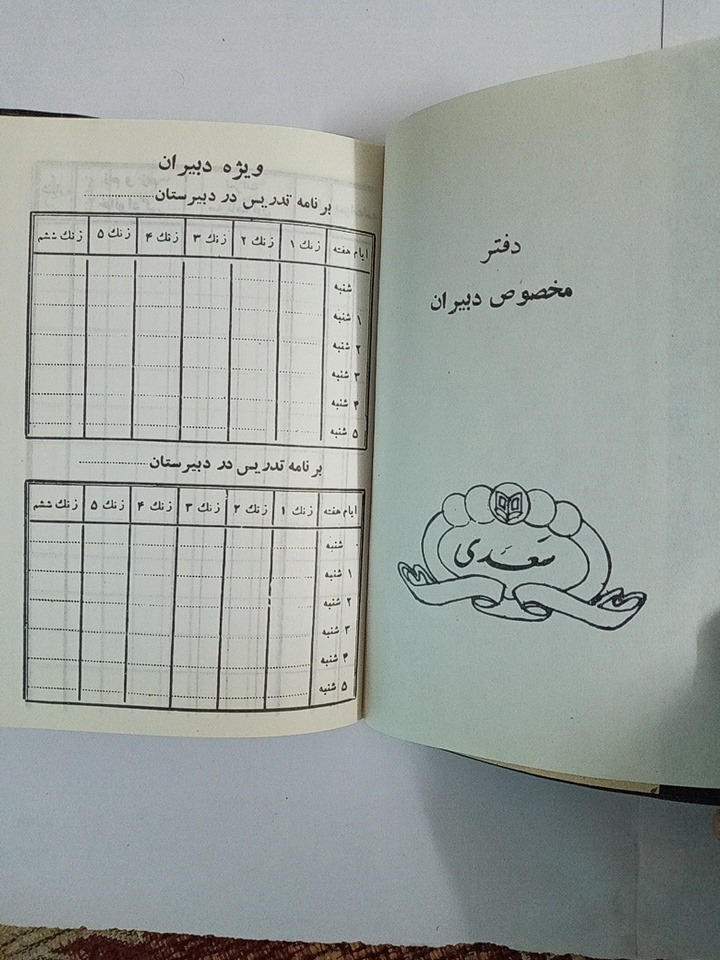 دفتر
مخصوص دبیران
سعدی
ویژه دبیران
برنامه تدریس در دبیرستان....................
ایام هفته زنك ۱ زنك ۲ زنك ۳ زنك ۴ زنك ۵ زنك ششم
شنبه
۱ شنبه
۲ شنبه
۳ شنبه
۴ شنبه
۵ شنبه
برنامه تدریس در دبیرستان....................
ایام هفته زنك ۱ زنك ۲ زنك ۳ زنك ۴ زنك ۵ زنك ششم
شنبه
۱ شنبه
۲ شنبه
۳ شنبه
۴ شنبه
۵ شنبه